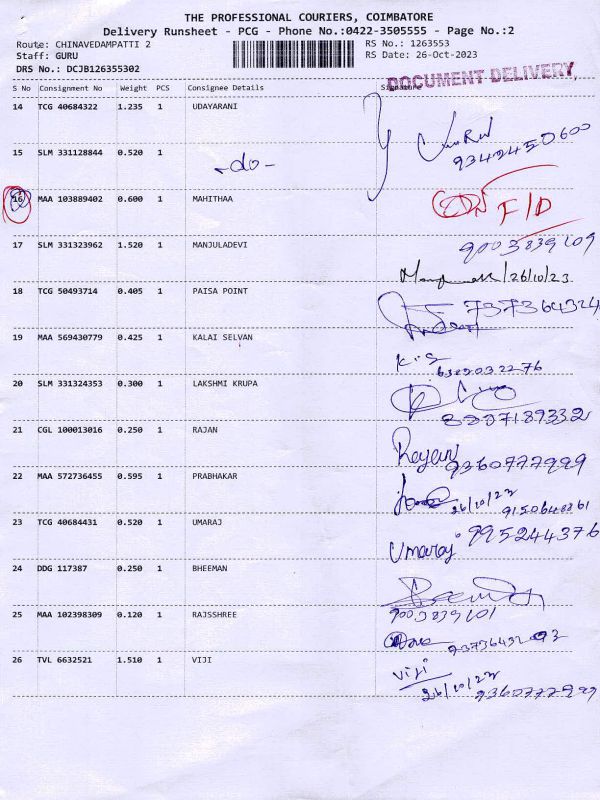 THE PROFESSIONAL COURIERS, COIMBATORE
Delivery Runsheet - PCG - Phone No.:0422-3505555 - Page No.:2
Route: CHINAVEDAMPATTI 2 RS No.: 1263553
Staff: GURU RS Date: 26-Oct-2023
DRS No.: DCJB126355302
DOCUMENT DELIVERY,
S No Consignment No Weight PCS Consignee Details Signature
14 TCG 40684322 1.235 1 UDAYARANI
9342450600
15 SLM 331128844 0.520 1 -do-
16 MAA 103889402 0.600 1 MAHITHAA F/D
17 SLM 331323962 1.520 1 MANJULADEVI 9003839109
/26/10/23
18 TCG 50493714 0.405 1 PAISA POINT 737364324
19 MAA 569430779 0.425 1 KALAI SELVAN K.S
6382032276
20 SLM 331324353 0.300 1 LAKSHMI KRUPA
21 CGL 100013016 0.250 1 RAJAN Rajan
9360777999
22 MAA 572736455 0.595 1 PRABHAKAR
23 TCG 40684431 0.520 1 UMARAJ Umaraj 995244376
24 DDG 117387 0.250 1 BHEEMAN
25 MAA 102398309 0.120 1 RAJSSHREE
26 TVL 6632521 1.510 1 VIJI Viji
9360777999